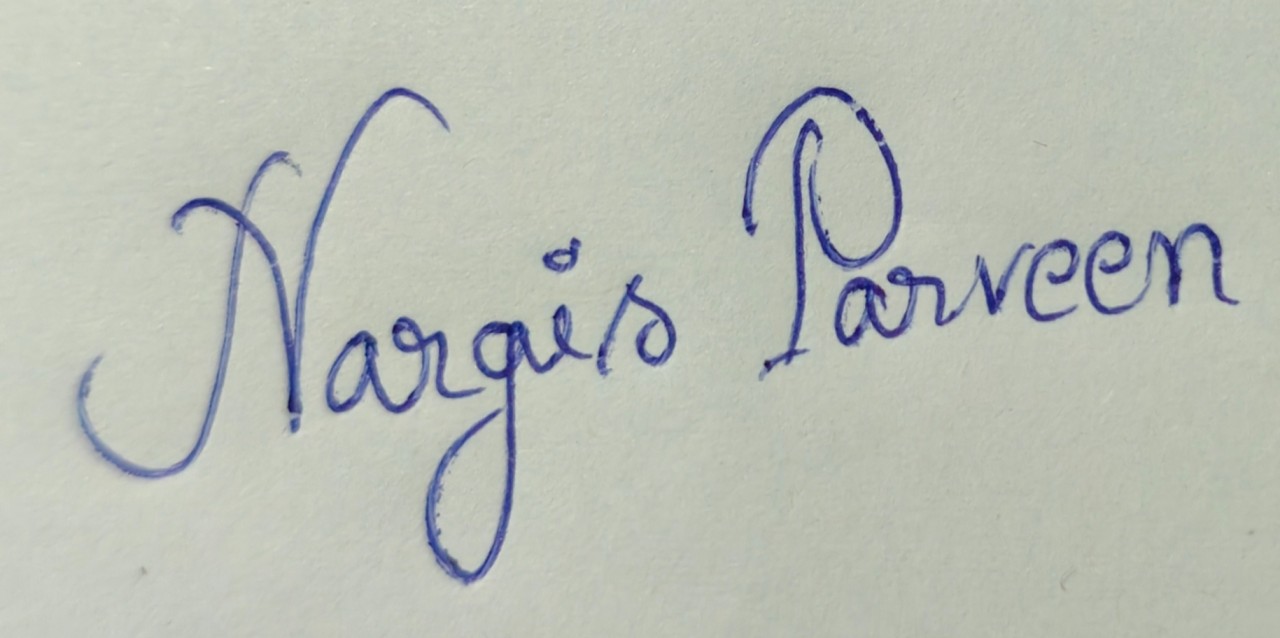 Nargis Parveen